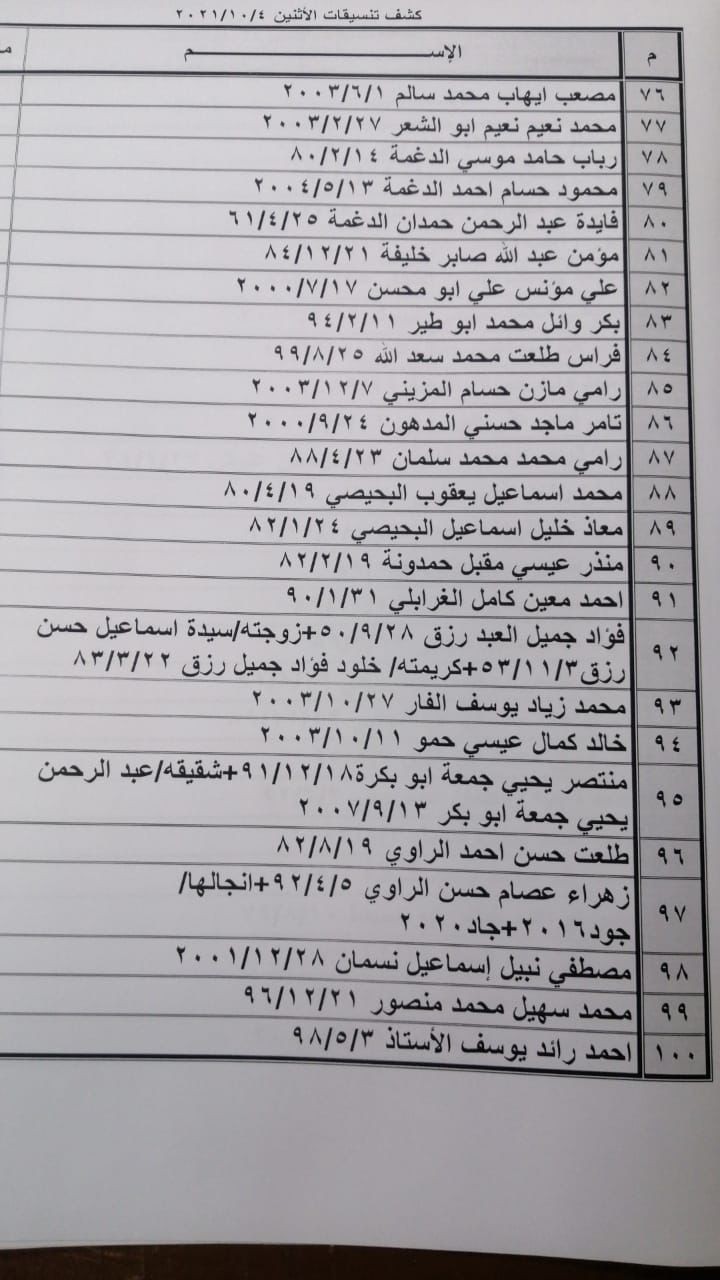 كشف تنسيقات الأثنين ٢٠٢١/١٠/٤
م الإســــــــــــم
٧٦ مصعب ايهاب محمد سالم ٢٠٠٣/٦/١
٧٧ محمد نعيم نعيم ابو الشعر ٢٠٠٣/٢/٢٧
٧٨ رباب حامد موسي الدغمة ٨٠/٢/١٤
٧٩ محمود حسام احمد الدغمة ٢٠٠٤/٥/١٣
٨٠ فايدة عبد الرحمن حمدان الدغمة ٦١/٤/٢٥
٨١ مؤمن عبد الله صابر خليفة ٨٤/١٢/٢١
٨٢ علي مؤنس علي ابو محسن ٢٠٠٠/٧/١٧
٨٣ بكر وائل محمد ابو طير ٩٤/٢/١١
٨٤ فراس طلعت محمد سعد الله ٩٩/٨/٢٥
٨٥ رامي مازن حسام المزيني ٢٠٠٣/١٢/٧
٨٦ تامر ماجد حسني المدهون ٢٠٠٠/٩/٢٤
٨٧ رامي محمد محمد سلمان ٨٨/٤/٢٣
٨٨ محمد اسماعيل يعقوب البحيصي ٨٠/٤/١٩
٨٩ معاذ خليل اسماعيل البحيصي ٨٢/١/٢٤
٩٠ منذر عيسي مقبل حمدونة ٨٢/٢/١٩
٩١ احمد معين كامل الغرابلي ٩٠/١/٣١
٩٢ فؤاد جميل العبد رزق ٥٠/٩/٢٨+زوجته/سيدة اسماعيل حسن
رزق٥٣/١١/٣+كريمته/ خلود فؤاد جميل رزق ٨٣/٣/٢٢
٩٣ محمد زياد يوسف الفار ٢٠٠٣/١٠/٢٧
٩٤ خالد كمال عيسي حمو ٢٠٠٣/١٠/١١
٩٥ منتصر يحيي جمعة ابو بكرة٩١/١٢/١٨+شقيقه/عبد الرحمن
يحيي جمعة ابو بكر ٢٠٠٧/٩/١٣
٩٦ طلعت حسن احمد الراوي ٨٢/٨/١٩
٩٧ زهراء عصام حسن الراوي ٩٢/٤/٥+انجالها/
جود٢٠١٦+جاد٢٠٢٠
٩٨ مصطفي نبيل إسماعيل نسمان ٢٠٠١/١٢/٢٨
٩٩ محمد سهيل محمد منصور ٩٦/١٢/٢١
١٠٠ احمد رائد يوسف الأستاذ ٩٨/٥/٣